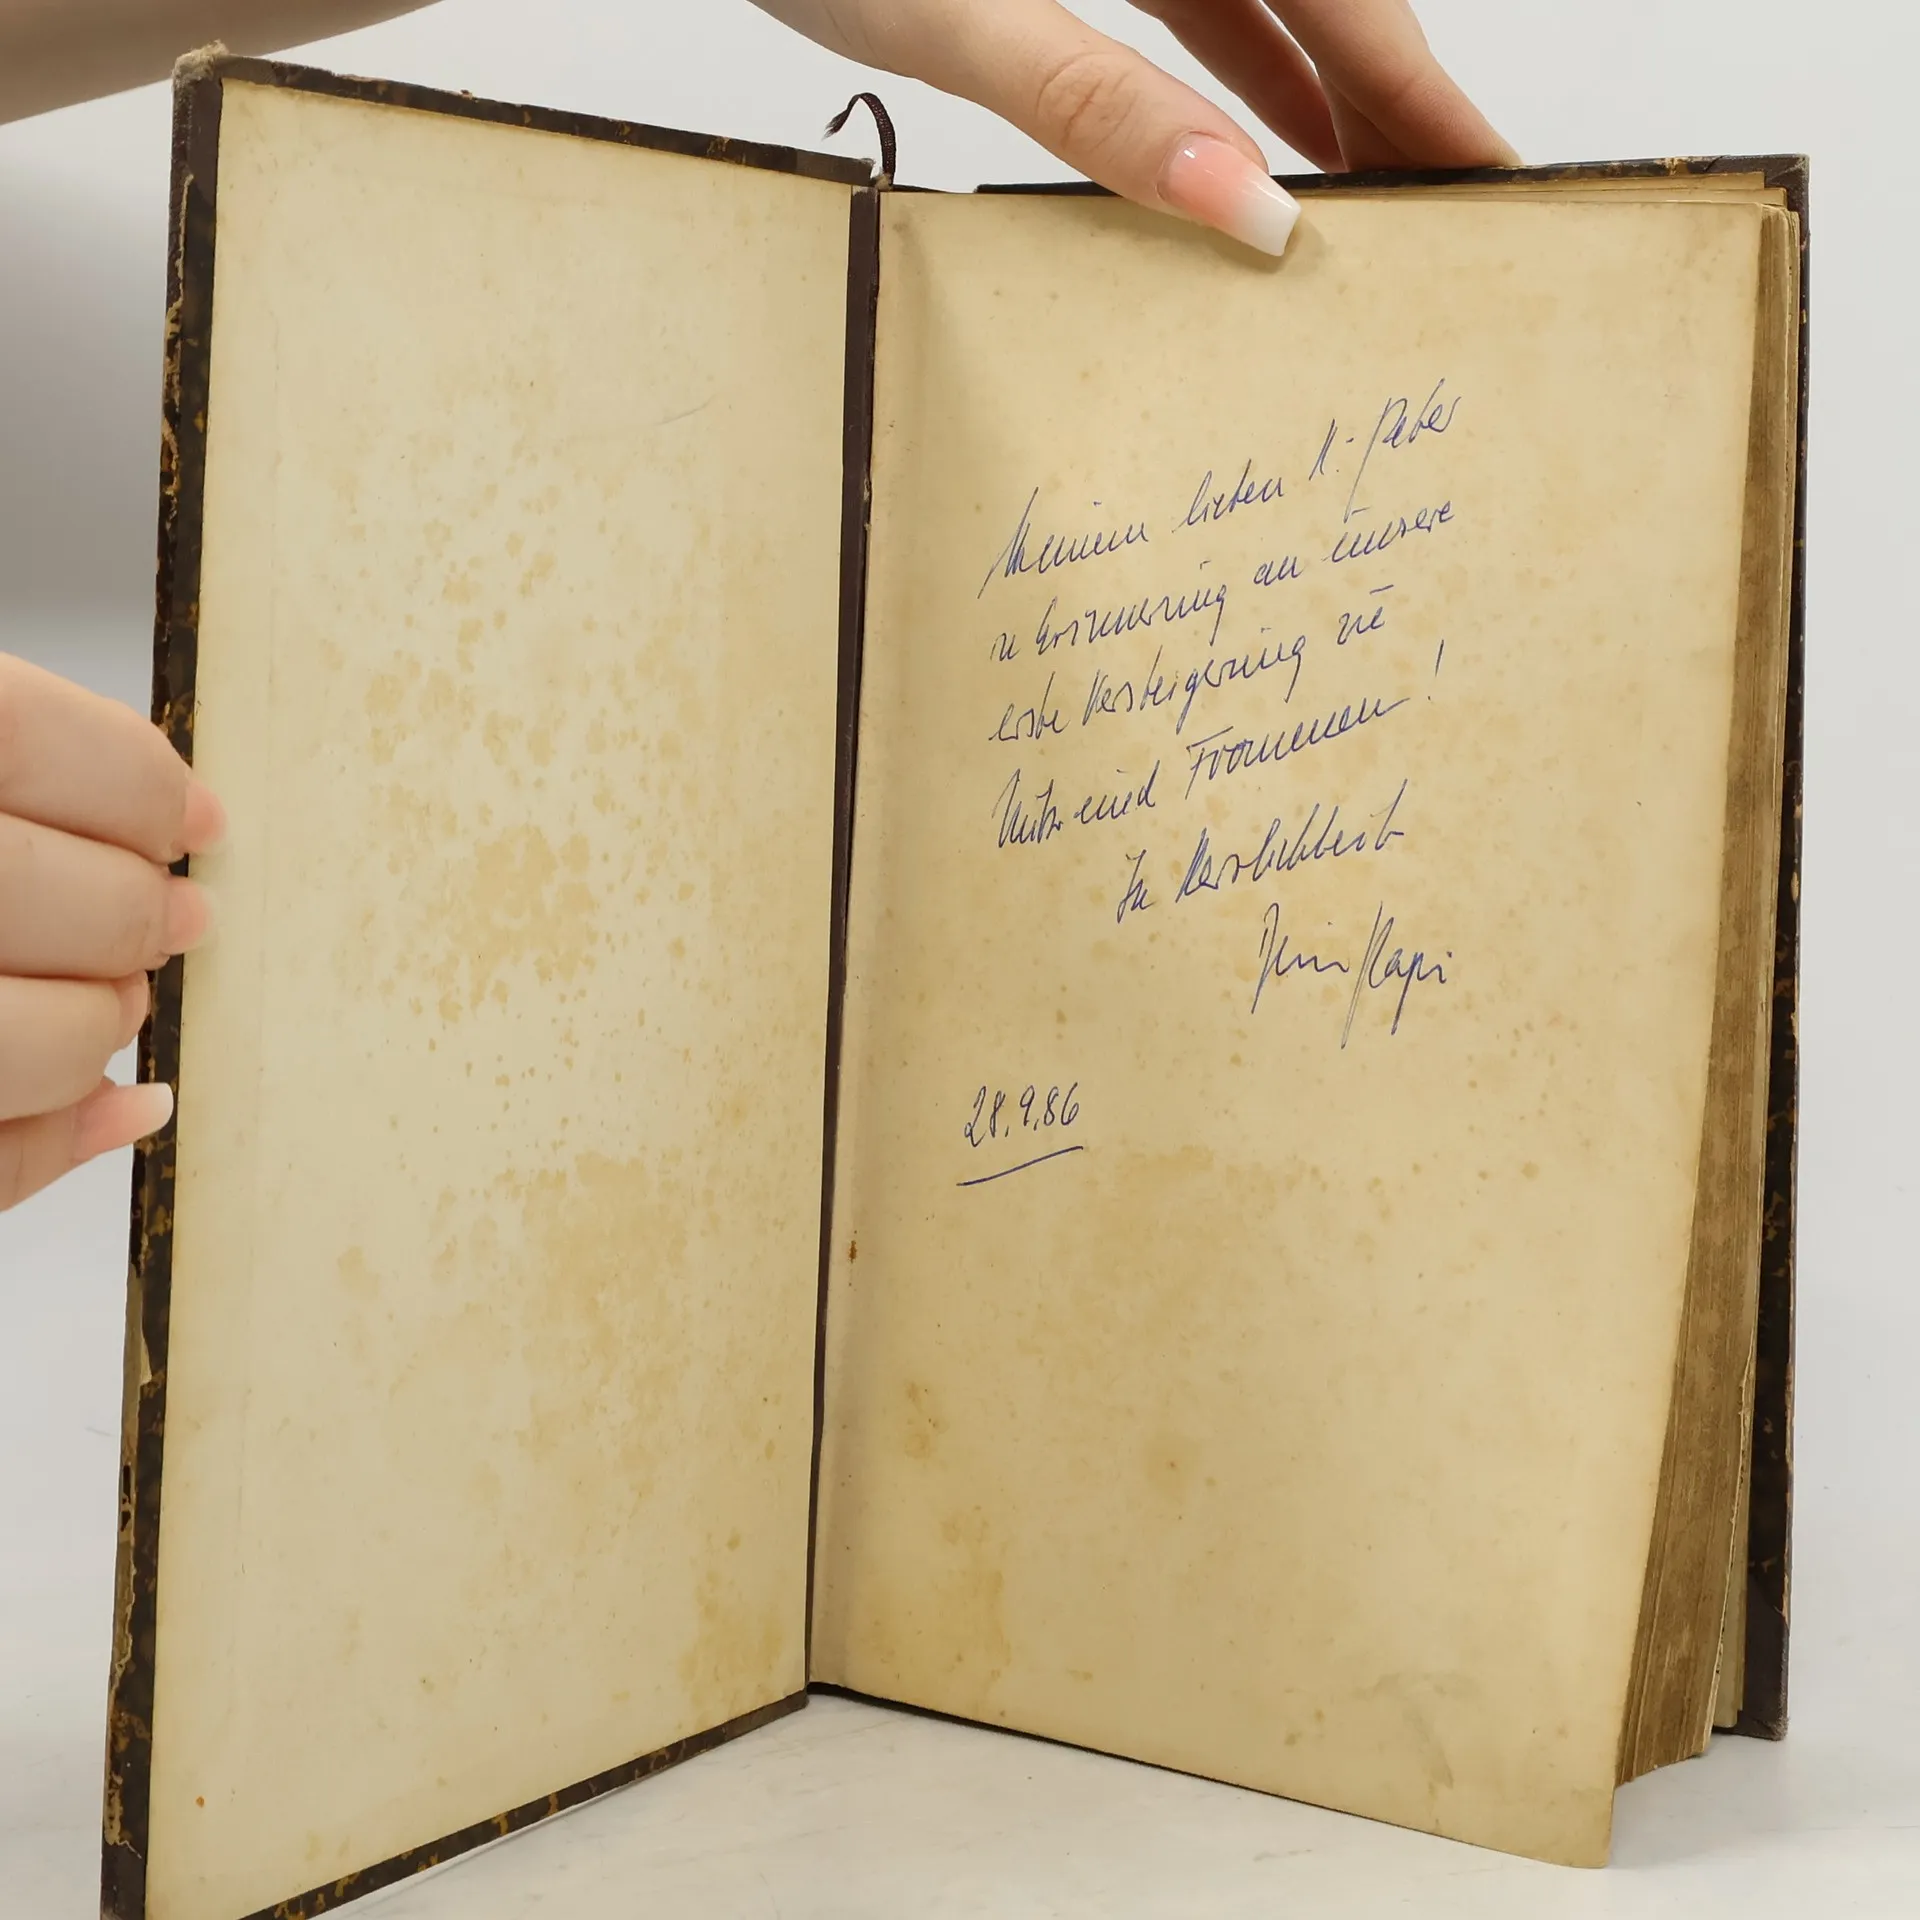 Meinem lieben K.-Peter
zu Erinnerung an unsere
erste Versteigerung zu
Nutz und Frommen!
In Herzlichkeit
Dein Papi
28.9.86